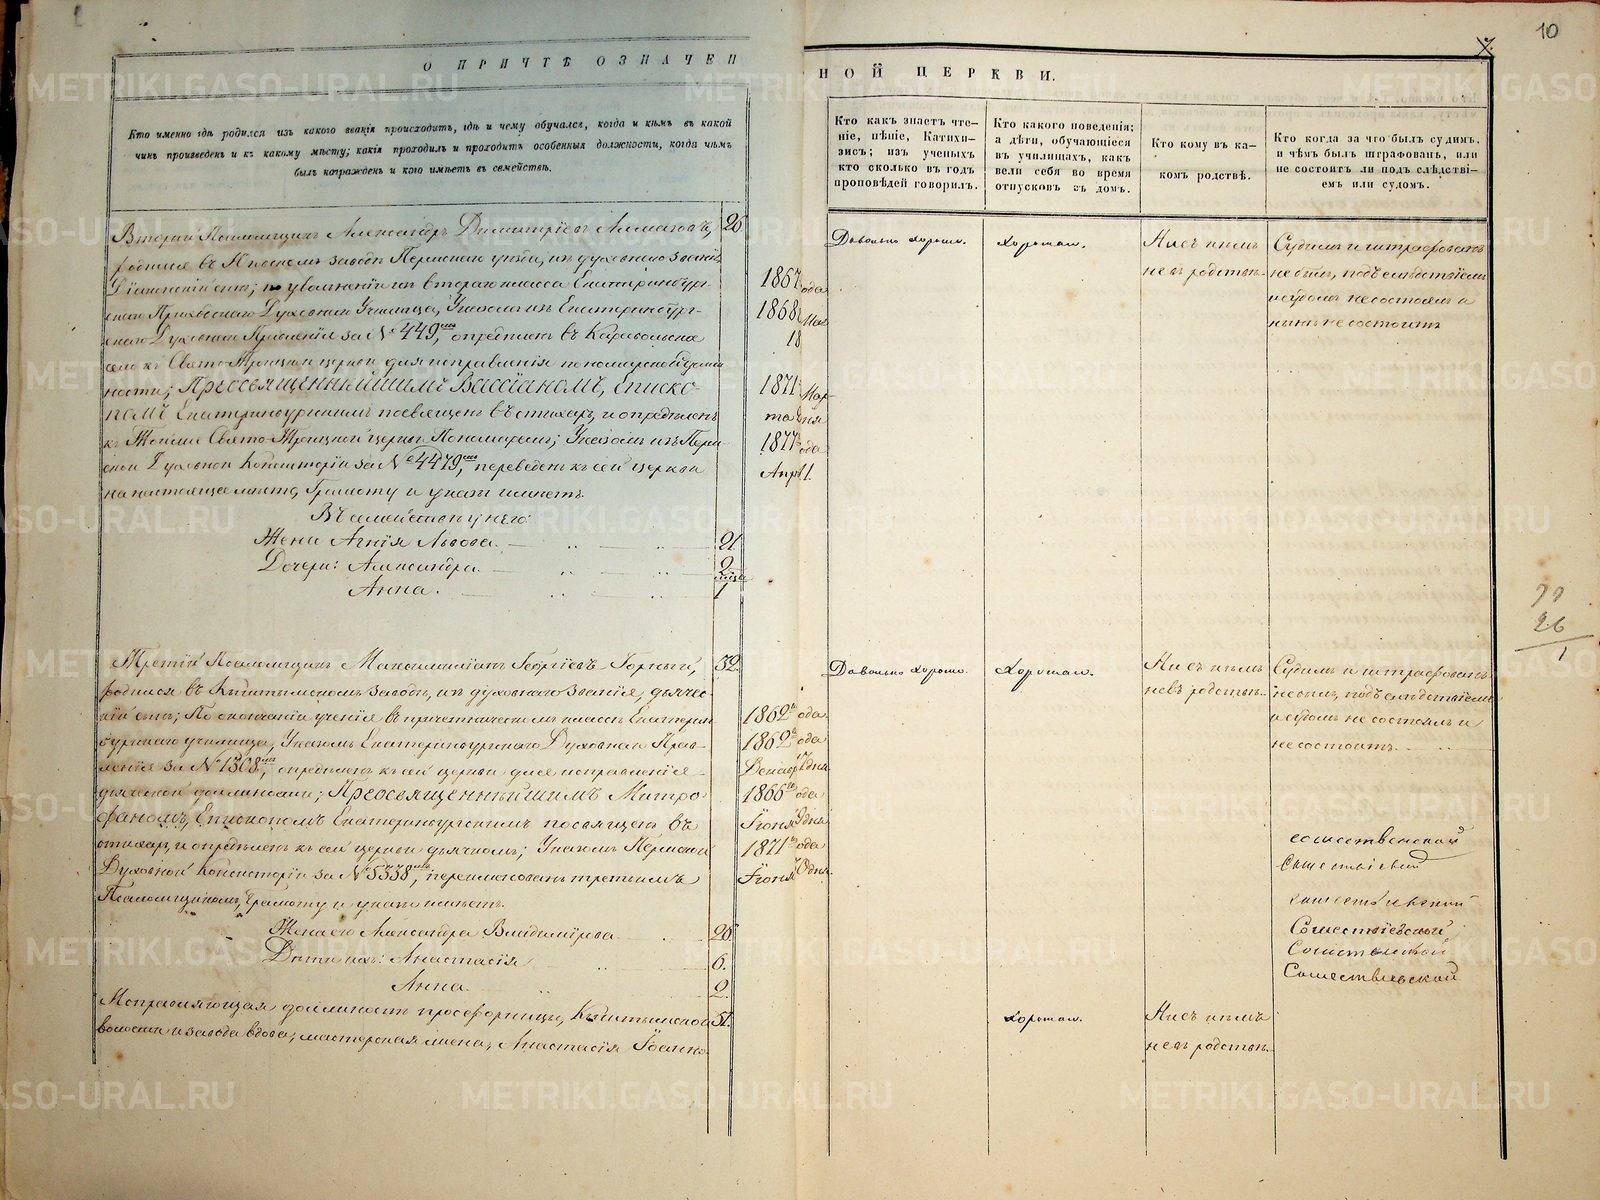 О ПРИЧТѢ ОЗНАЧЕН
НОЙ ЦЕРКВИ.
10
7.
Кто именно гдѣ родился изъ какого званія происходитъ, гдѣ и чему обучался, когда и кѣмъ въ какой
чинъ произведенъ и къ какому мѣсту; какія проходилъ и проходитъ особенныя должности, когда чѣмъ
былъ награжденъ и кого имѣетъ въ семействѣ.
Кто какъ знаетъ чте-
ніе, пѣніе, Катихи-
зисъ; изъ ученыхъ
кто сколько въ годъ
проповѣдей говорилъ.
Кто какого поведенія;
а дѣти, обучающіеся
въ училищахъ, какъ
вели себя во время
отпусковъ въ домъ.
Кто кому въ ка-
комъ родствѣ.
Кто когда за что былъ судимъ,
и чѣмъ былъ штрафованъ, или
не состоитъ ли подъ слѣдстві-
емъ или судомъ.
Вторый Псаломщикъ Александръ Димитріевъ 26
родился въ заводѣ Пермскаго уѣзда, изъ духовнаго званія
Діаконскій сынъ; по увольненіи изъ втораго класса Екатеринбург- 1867 года
скаго Духовнаго Училища, Указомъ изъ Екатеринбург- 1868 Мая
скаго Духовнаго Правленія за № 449, опредѣленъ въ 18
село къ Свято-Троицкой церкви для исправленія пономарской должн
ности; Преосвященнѣйшимъ Вассіаномъ, Еписко- 1871 Мар-
помъ Екатеринбургскимъ посвященъ въ стихарь, и опредѣленъ та дня
къ Свято-Троицкой церкви Пономаремъ; Указомъ изъ Перм- 1877 года
ской Духовной Консисторіи за № 4479, переведенъ къ сей церкви Апр 1.
на настоящее мѣсто, Грамоту и указъ имѣетъ.
Въ семействѣ у него:
Жена Агнія Львова 21
Дочери: Александра 2
мѣсц
Анна. 1
Довольно хорошо.
Хорошаго.
Ни съ кѣмъ
не въ родствѣ.
Судимъ и штрафованъ
не былъ, подъ слѣдствіемъ
и судомъ не состоялъ и
нынѣ не состоитъ
Третій Псаломщикъ Максимиліанъ Георгіевъ Горный, 32
родился въ Кыштымскомъ заводѣ, изъ духовнаго званія, дьячес-
кій сынъ; По окончаніи ученія въ причетническомъ классѣ Екатерин 1862 года
бургскаго училища, Указомъ Екатеринбургскаго Духовнаго Прав- 1862 года
ленія за № 1308, опредѣленъ къ сей церкви для исправленія Декабр 17 дня
дьяческой должности; Преосвященнѣйшимъ Митро- 1866 года
фаномъ, Епископомъ Екатеринбургскимъ посвященъ въ Іюня 9 дня
стихарь, и опредѣленъ къ сей церкви дьячкомъ; Указомъ Пермской 1871 года
Духовной Консисторіи за № 5338, переименованъ третьимъ Іюня дня.
Псаломщикомъ, Грамоту и указъ имѣетъ.
Жена его Александра Владимірова 26
Дѣти ихъ: Анастасія 6.
Анна 2.
Довольно хорошо.
Хорошаго.
Ни съ кѣмъ
не въ родствѣ.
Судимъ и штрафованъ
не былъ, подъ слѣдствіемъ
и судомъ не состоялъ и
не состоитъ.
Исправляющая должность просфорницы, Кыштымской 51.
волости и завода вдова, мастерская жена, Анастасія Іоанно-
Хорошаго.
Ни съ кѣмъ
не въ родствѣ.
Сошественской
Сошествіевской
Сошественской
Сошествіевской
26
METRIKI.GASO-URAL.RU